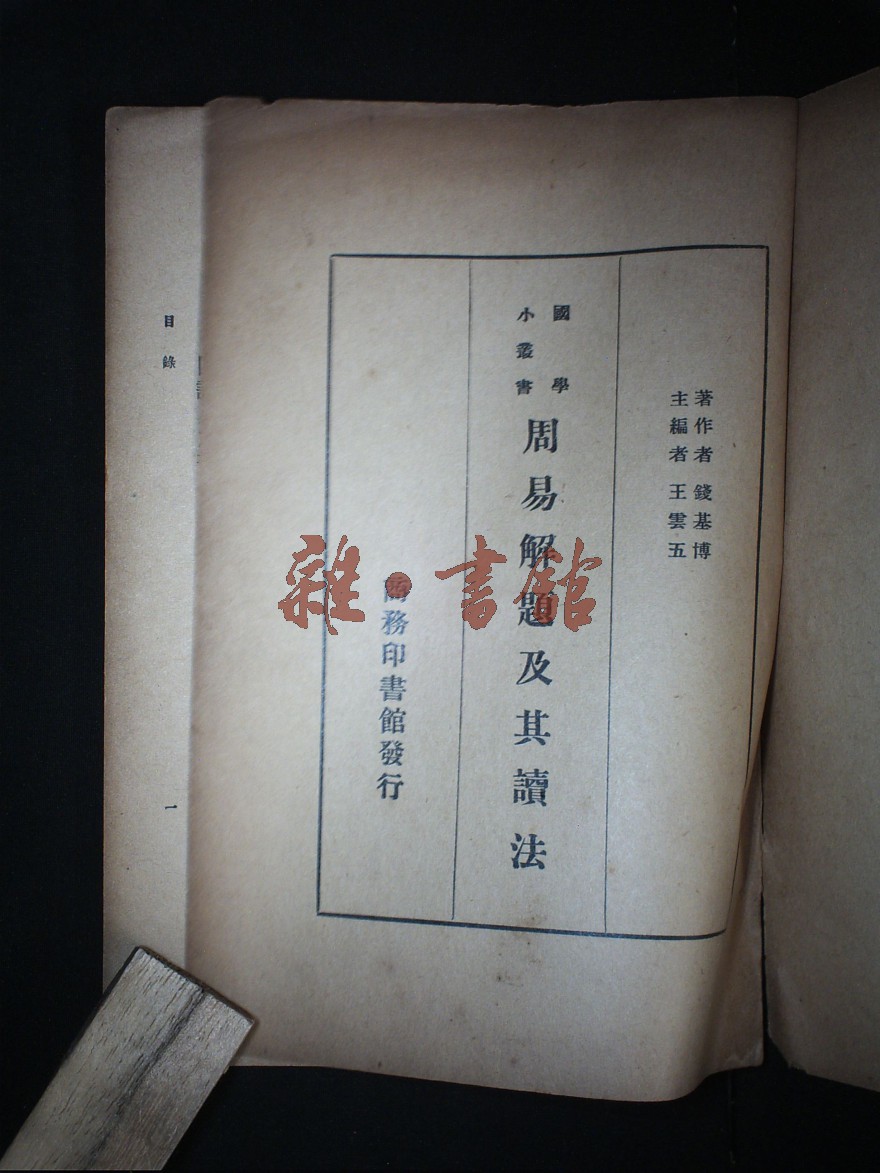 著作者 錢基博
主編者 王雲五
國學
小叢書
周易解題及其讀法
商務印書館發行
雜·書館
目錄
一